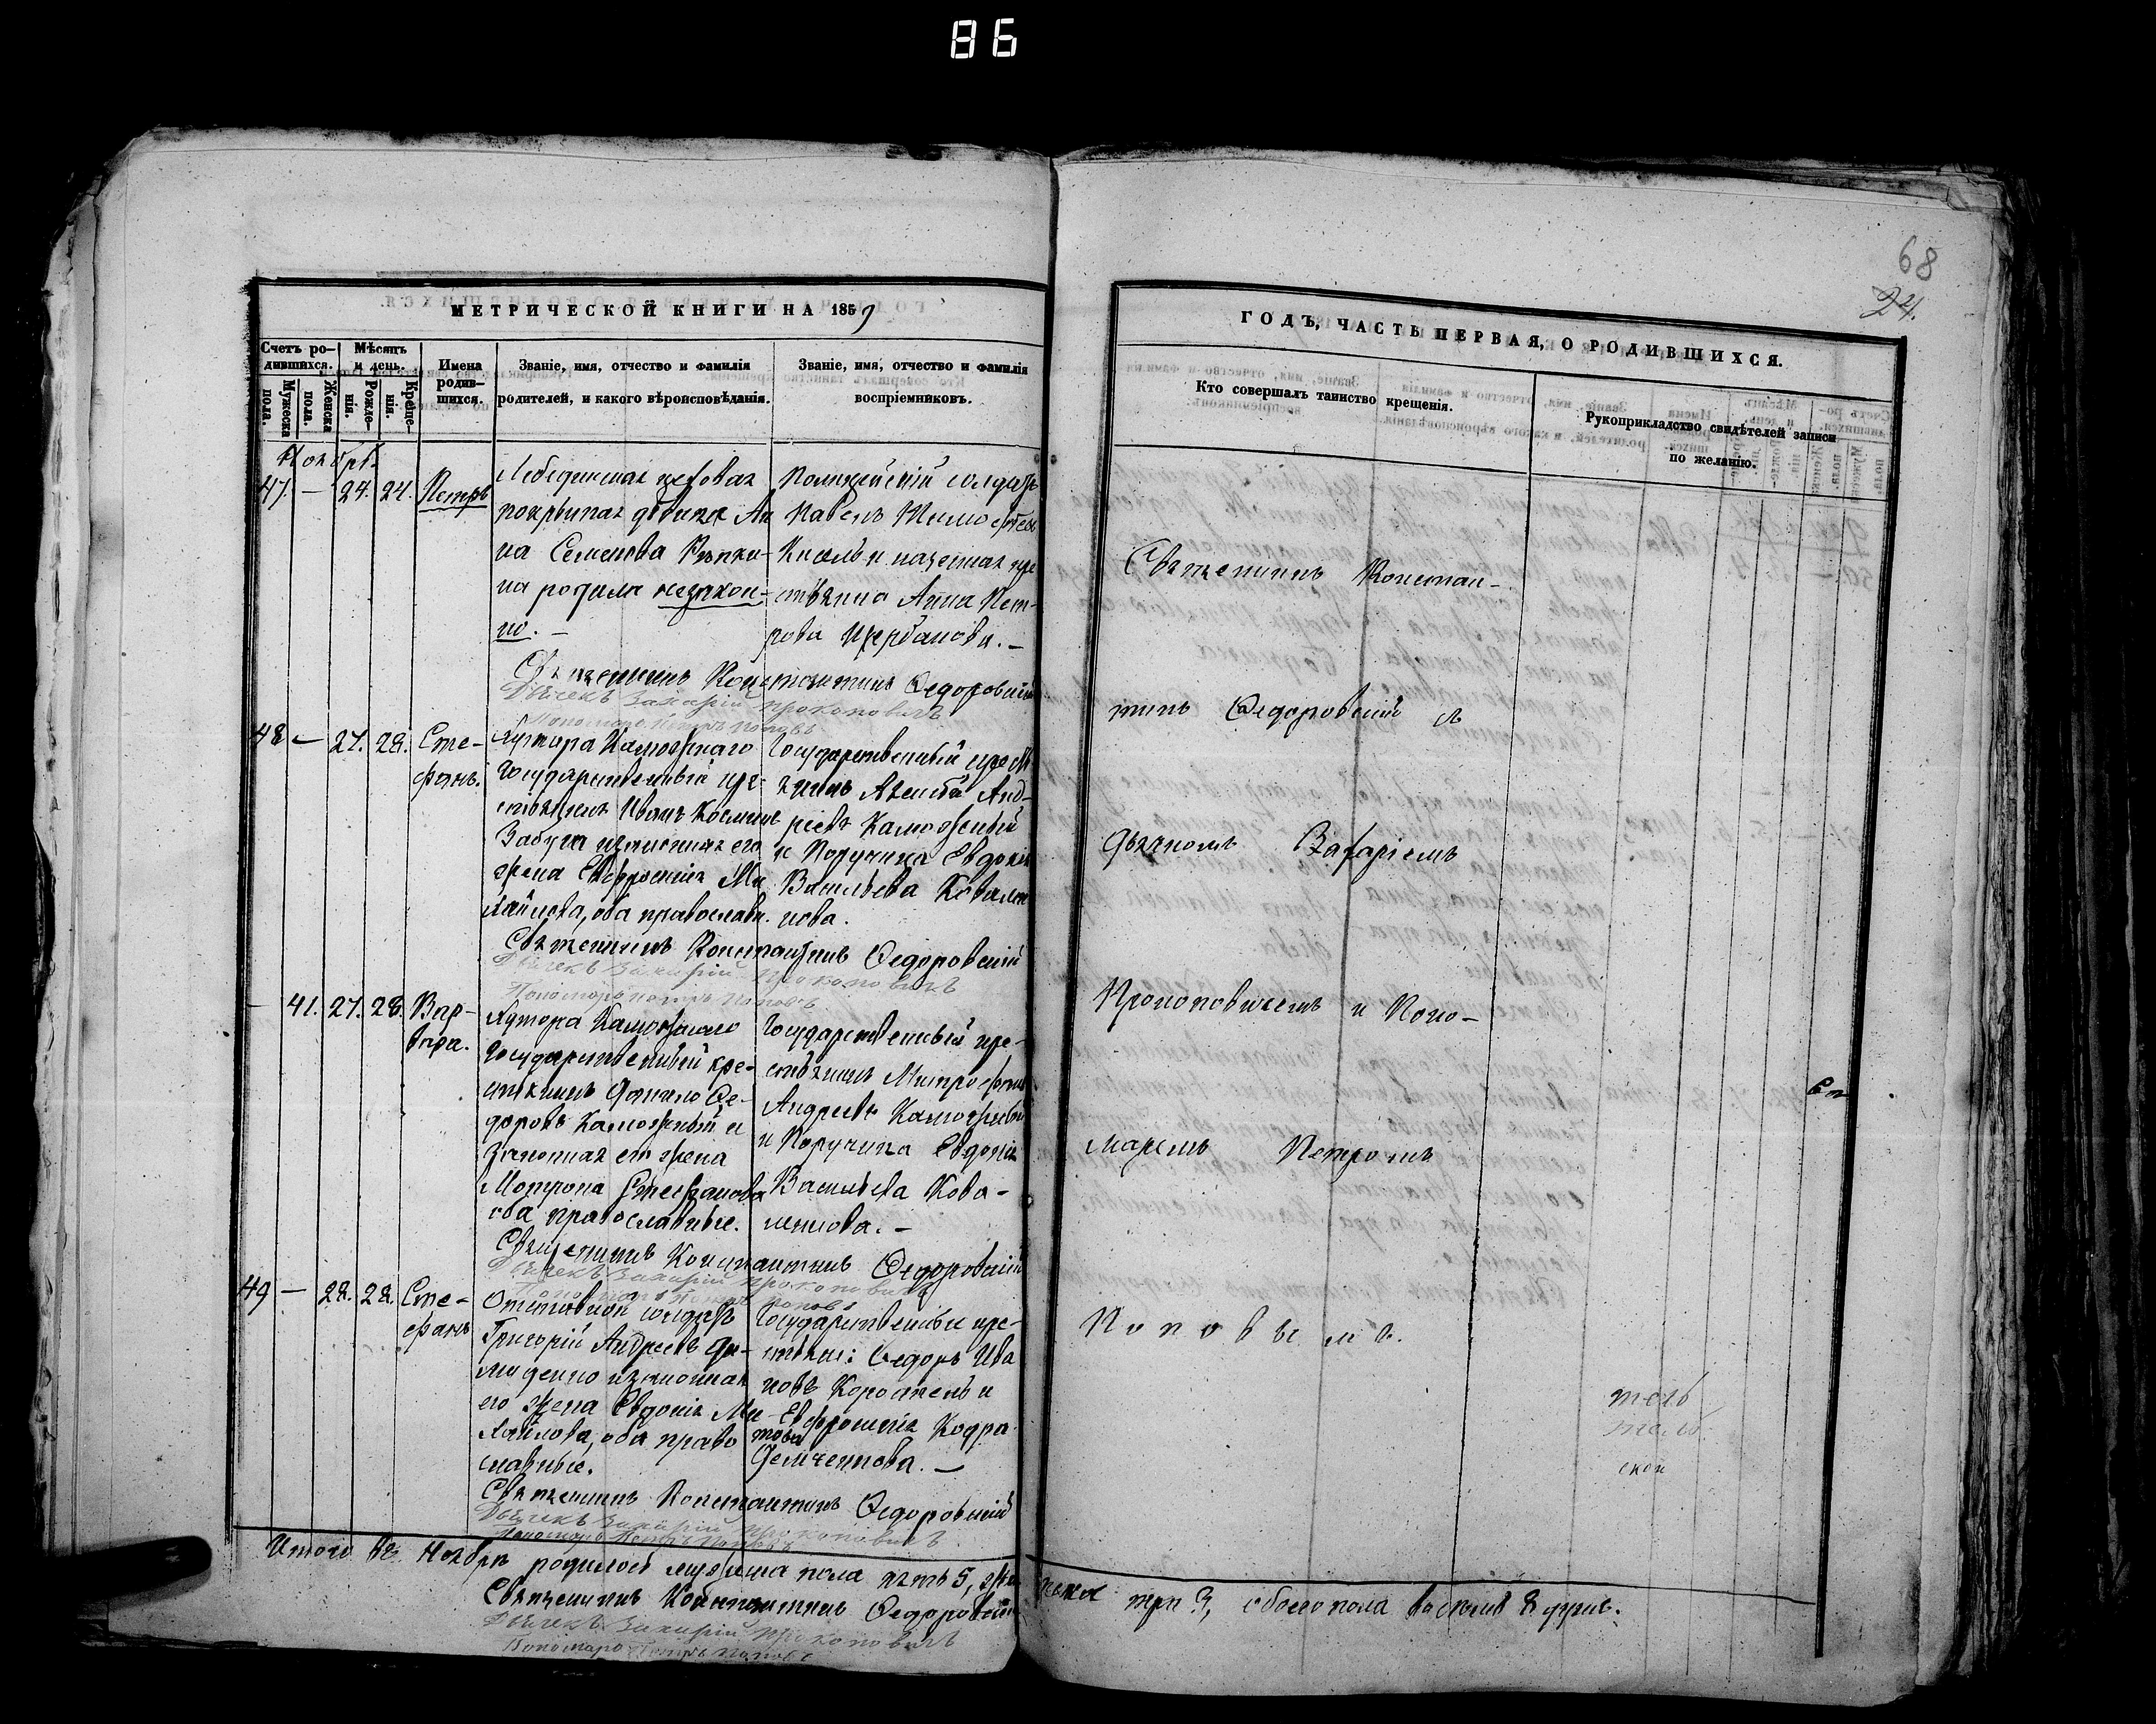 86
68
24.
МЕТРИЧЕСКОЙ КНИГИ НА 1859
ГОДЪ, ЧАСТЬ ПЕРВАЯ, О РОДИВШИХСЯ.
Счетъ ро-
дившихся.
Мужеска
пола.
Женска
пола.
Мѣсяцъ
и день.
Рожде-
нія.
Креще-
нія.
Имена
родив-
шихся.
Званіе, имя, отчество и фамилія
родителей, и какого вѣроисповѣданія.
Званіе, имя, отчество и фамилія
воспріемниковъ.
Кто совершалъ таинство крещенія.
Рукоприкладство свидѣтелей записи
по желанію.
Ноябрь
47. — 24. 24. Петръ
Лебединская
покрытка Ан
на Семенова
на родила незакон-
но. —
солдатъ
Павелъ
Кисель и казенная кре
стьянка Анна Пет-
рова Щербакова. —
Священникъ Константинъ Ѳедоровскій
Дьячекъ Захарій Прокоповичъ
Пономарь Петръ Поповъ
48 — 27. 28. Сте-
фанъ.
Хутора Каможнаго
Государственный кре-
стьянинъ Иванъ Косминъ
Забуга и законная его
жена Евфросинія Ми
хайлова, оба православн.
Государственный крест
янинъ Анд-
реевъ Каможный
и Поручика Евдокія
Васильева Ковален
кова.
Священникъ Константинъ Ѳедоровскій
Дьячекъ Захарій Прокоповичъ
Пономарь Петръ Поповъ
— 41. 27. 28. Вар-
вара.
Хутора Каможнаго
Государственный кре-
стьянинъ Данило Ѳе-
доровъ Каможный и
законная его жена
Мотрона Стефанова
оба православные.
Государственный кре-
стьянинъ Митрофанъ
Андреевъ Каможный
и Поручика Евдокія
Васильева Кова-
ленкова. —
Священникъ Константинъ Ѳедоровскій
Дьячекъ Захарій Прокоповичъ
Пономарь Петръ Поповъ
49 — 28. 28. Сте-
фанъ
Отставной солдатъ
Григорій Андреевъ Ди-
миденко и законная
его жена Евдокія Ми
хайлова, оба право
славные.
Государственные кре-
стьяне: Ѳедоръ Ива
новъ и
Евфросинія Кодра
това
Демченкова. —
Священникъ Константинъ Ѳедоровскій
Дьячекъ Захарій Прокоповичъ
Пономарь Петръ Поповъ
Итого въ Ноябрѣ родилось мужеска пола пять 5, жен
ска три 3, обоего пола восемь 8 душъ.
Священникъ Константинъ Ѳедоровскій
Дьячекъ Захарій Прокоповичъ
Пономарь Петръ Поповъ
Священникъ Констан-
тинъ Ѳедоровскій съ
Дьячкомъ Захаріемъ
Прокоповичемъ и Поно-
маремъ Петромъ
Поповымъ.